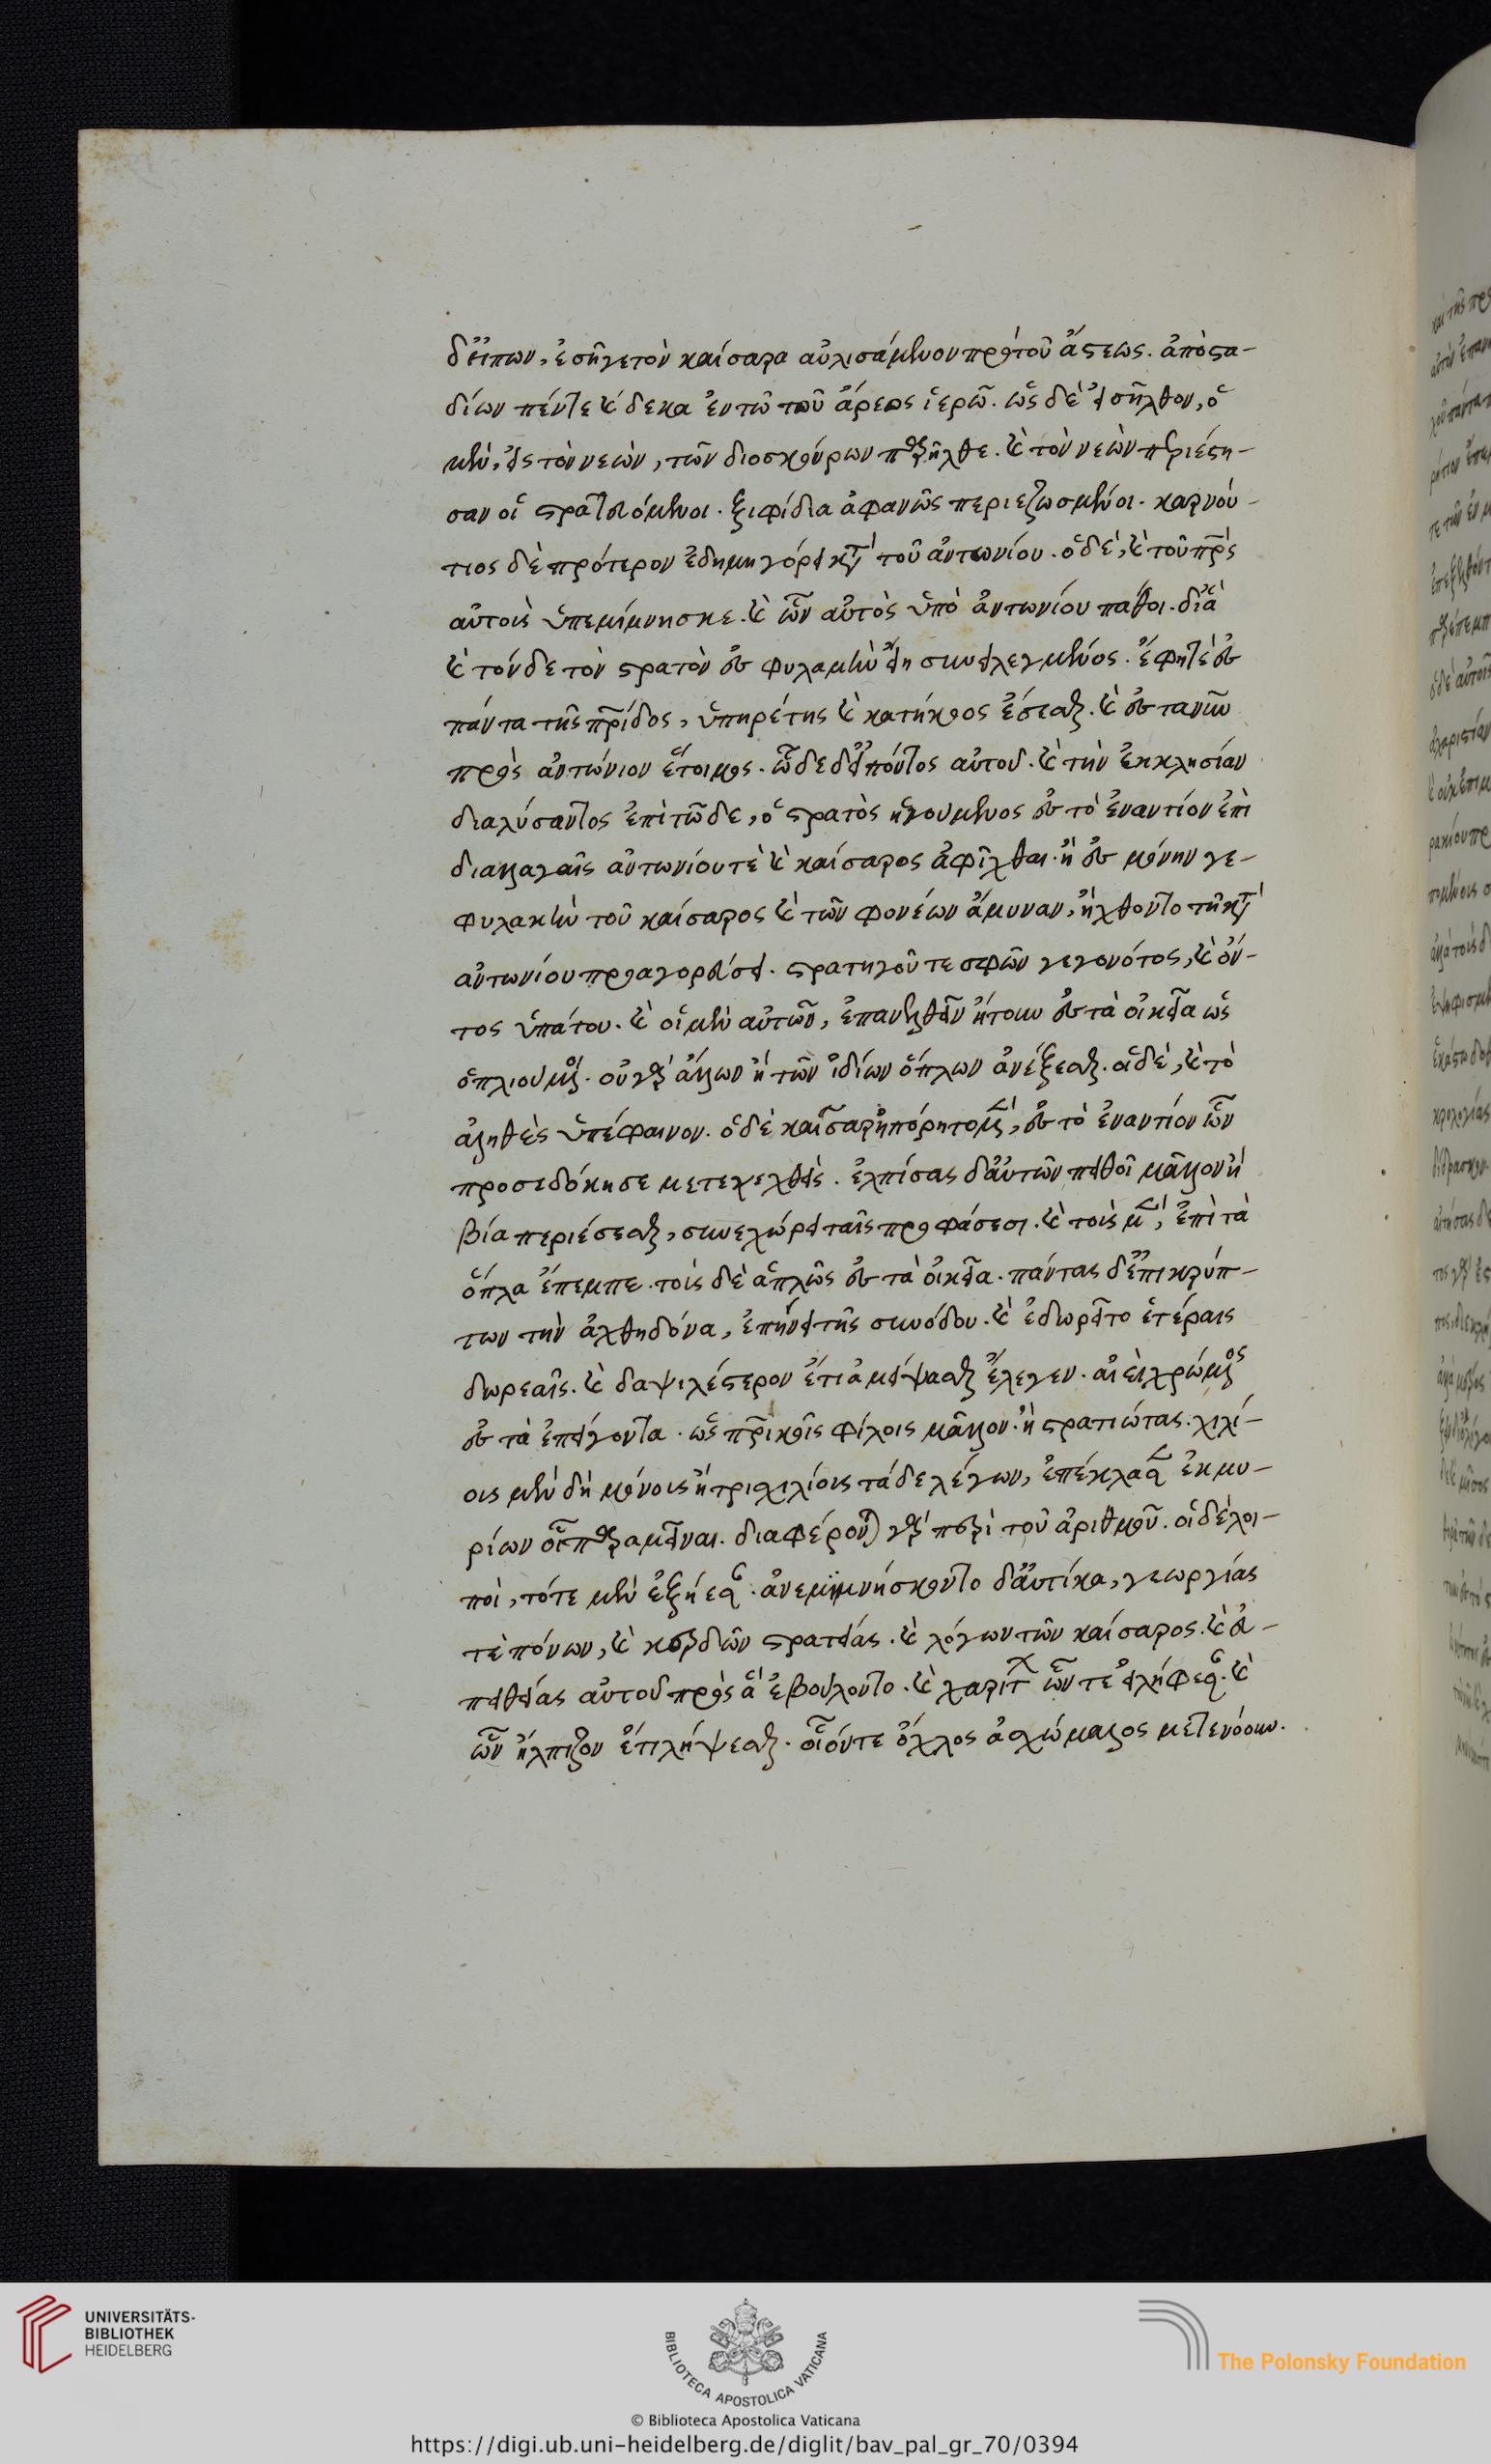 δ' εἰπὼν, ἐσῆγε τὸν καίσαρα αὐλισάμενον πρὸ τοῦ ἄστεως. ἀπὸ στα-
δίων πέντε καὶ δεκα ἐν τῶ τοῦ ἄρεος ἱερῶ. ὡς δὲ εἰσῆλθον, ὁ
μὲν, ἐς τὸν νεὼν, τῶν διοσκούρων παρῆλθε. καὶ τὸν νεὼν περιέστη-
σαν οἱ στρατευόμενοι. ξιφίδια ἀφανῶς περιεζωσμένοι. καρνού-
τιος δὲ πρότερον ἐδημηγόρει κατὰ τοῦ ἀντωνίου. ὁ δὲ, καὶ τοῦ πατρὸς
αὐτοῖς ὑπεμίμνησκε. καὶ ὧν αὐτὸς ὑπὸ ἀντωνίου πάθοι. δι' ἃ
καὶ τόνδε τὸν στρατὸν ἐς φυλακὴν εἴη συνειλεγμένος. ἔφη τὲ ἐς
πάντα τῆς πατρίδος, ὑπηρέτης καὶ κατήκοος ἔσεσθαι. καὶ ἐς τανῦν
πρὸς ἀντώνιον ἕτοιμος. ὧδε δ' εἰπόντος αὐτοῦ. καὶ τὴν ἐκκλησίαν
διαλύσαντος ἐπὶ τῶδε, ὁ στρατὸς ἡγούμενος ἐς τὸ ἐναντίον ἐπὶ
διαλλαγαῖς ἀντωνίου τὲ καὶ καίσαρος ἀφῖχθαι. ἢ ἐς μόνην γε
φυλακὴν τοῦ καίσαρος καὶ τῶν φονέων ἄμυναν, ἤχθοντο τῆ κατὰ
ἀντωνίου προαγορεύσει. στρατηγοῦ τε σφῶν γεγονότος, καὶ ὄν-
τος ὑπάτου. καὶ οἱ μὲν αὐτῶν, ἐπανελθεῖν ἤτουν ἐς τὰ οἰκεῖα ὡς
ὁπλιούμενοι. οὐ γὰρ ἄλλων ἢ τῶν ἰδίων ὅπλων ἀνέξεσθαι. οἱ δὲ, καὶ τὸ
ἀληθὲς ὑπέφαινον. ὁ δὲ καῖσαρ ἠπόρητο μὲν, ἐς τὸ ἐναντίον ὧν
προσεδόκησε μετενεχθεὶς. ἐλπίσας δ' αὐτῶν πειθοῖ μᾶλλον ἢ
βία περιέσεσθαι, συνεχώρει ταῖς προφάσεσι. καὶ τοὺς μὲν, ἐπὶ τὰ
ὅπλα ἔπεμπε. τοὺς δὲ ἁπλῶς ἐς τὰ οἰκεῖα. πάντας δ' ἐπικρύπ-
των τὴν ἀχθηδόνα, ἐπήνει τῆς συνόδου. καὶ ἐδωρεῖτο ἑτέραις
δωρεαῖς. καὶ δαψιλέστερον ἔτι ἀμείψασθαι ἔλεγεν. αἰεὶ χρώμενος
ἐς τὰ ἐπείγοντα. ὡς πατρικοῖς φίλοις μᾶλλον. ἢ στρατιώταις. χιλί-
οις μὲν δὴ μόνοις ἢ τρισχιλίοις τάδε λέγων, ἐπέκλασεν ἐκ μυ-
ρίων οἱ παραμεῖναι. διαφέρονται γὰρ περὶ τοῦ ἀριθμοῦ. οἱ δὲ λοι-
ποὶ, τότε μὲν ἐξήεσαν. ἀνεμιμνήσκοντο δ' αὐτίκα, γεωργίας
τὲ πόνων, καὶ κερδῶν στρατείας. καὶ λόγων τῶν καίσαρος. καὶ εὐ-
πειθείας αὐτοῦ πρὸς ἃ ἐβούλοντο. καὶ χαρίτων ὧν τε εἰλήφεσαν. καὶ
ὧν ἤλπιζον ἔτι λήψεσθαι. οἷόν τε ὄχλος ἀσχώμαλος μετενόουν.
UNIVERSITÄTS-
BIBLIOTHEK
HEIDELBERG
BIBLIOTECA APOSTOLICA VATICANA
The Polonsky Foundation
© Biblioteca Apostolica Vaticana
https://digi.ub.uni-heidelberg.de/diglit/bav_pal_gr_70/0394